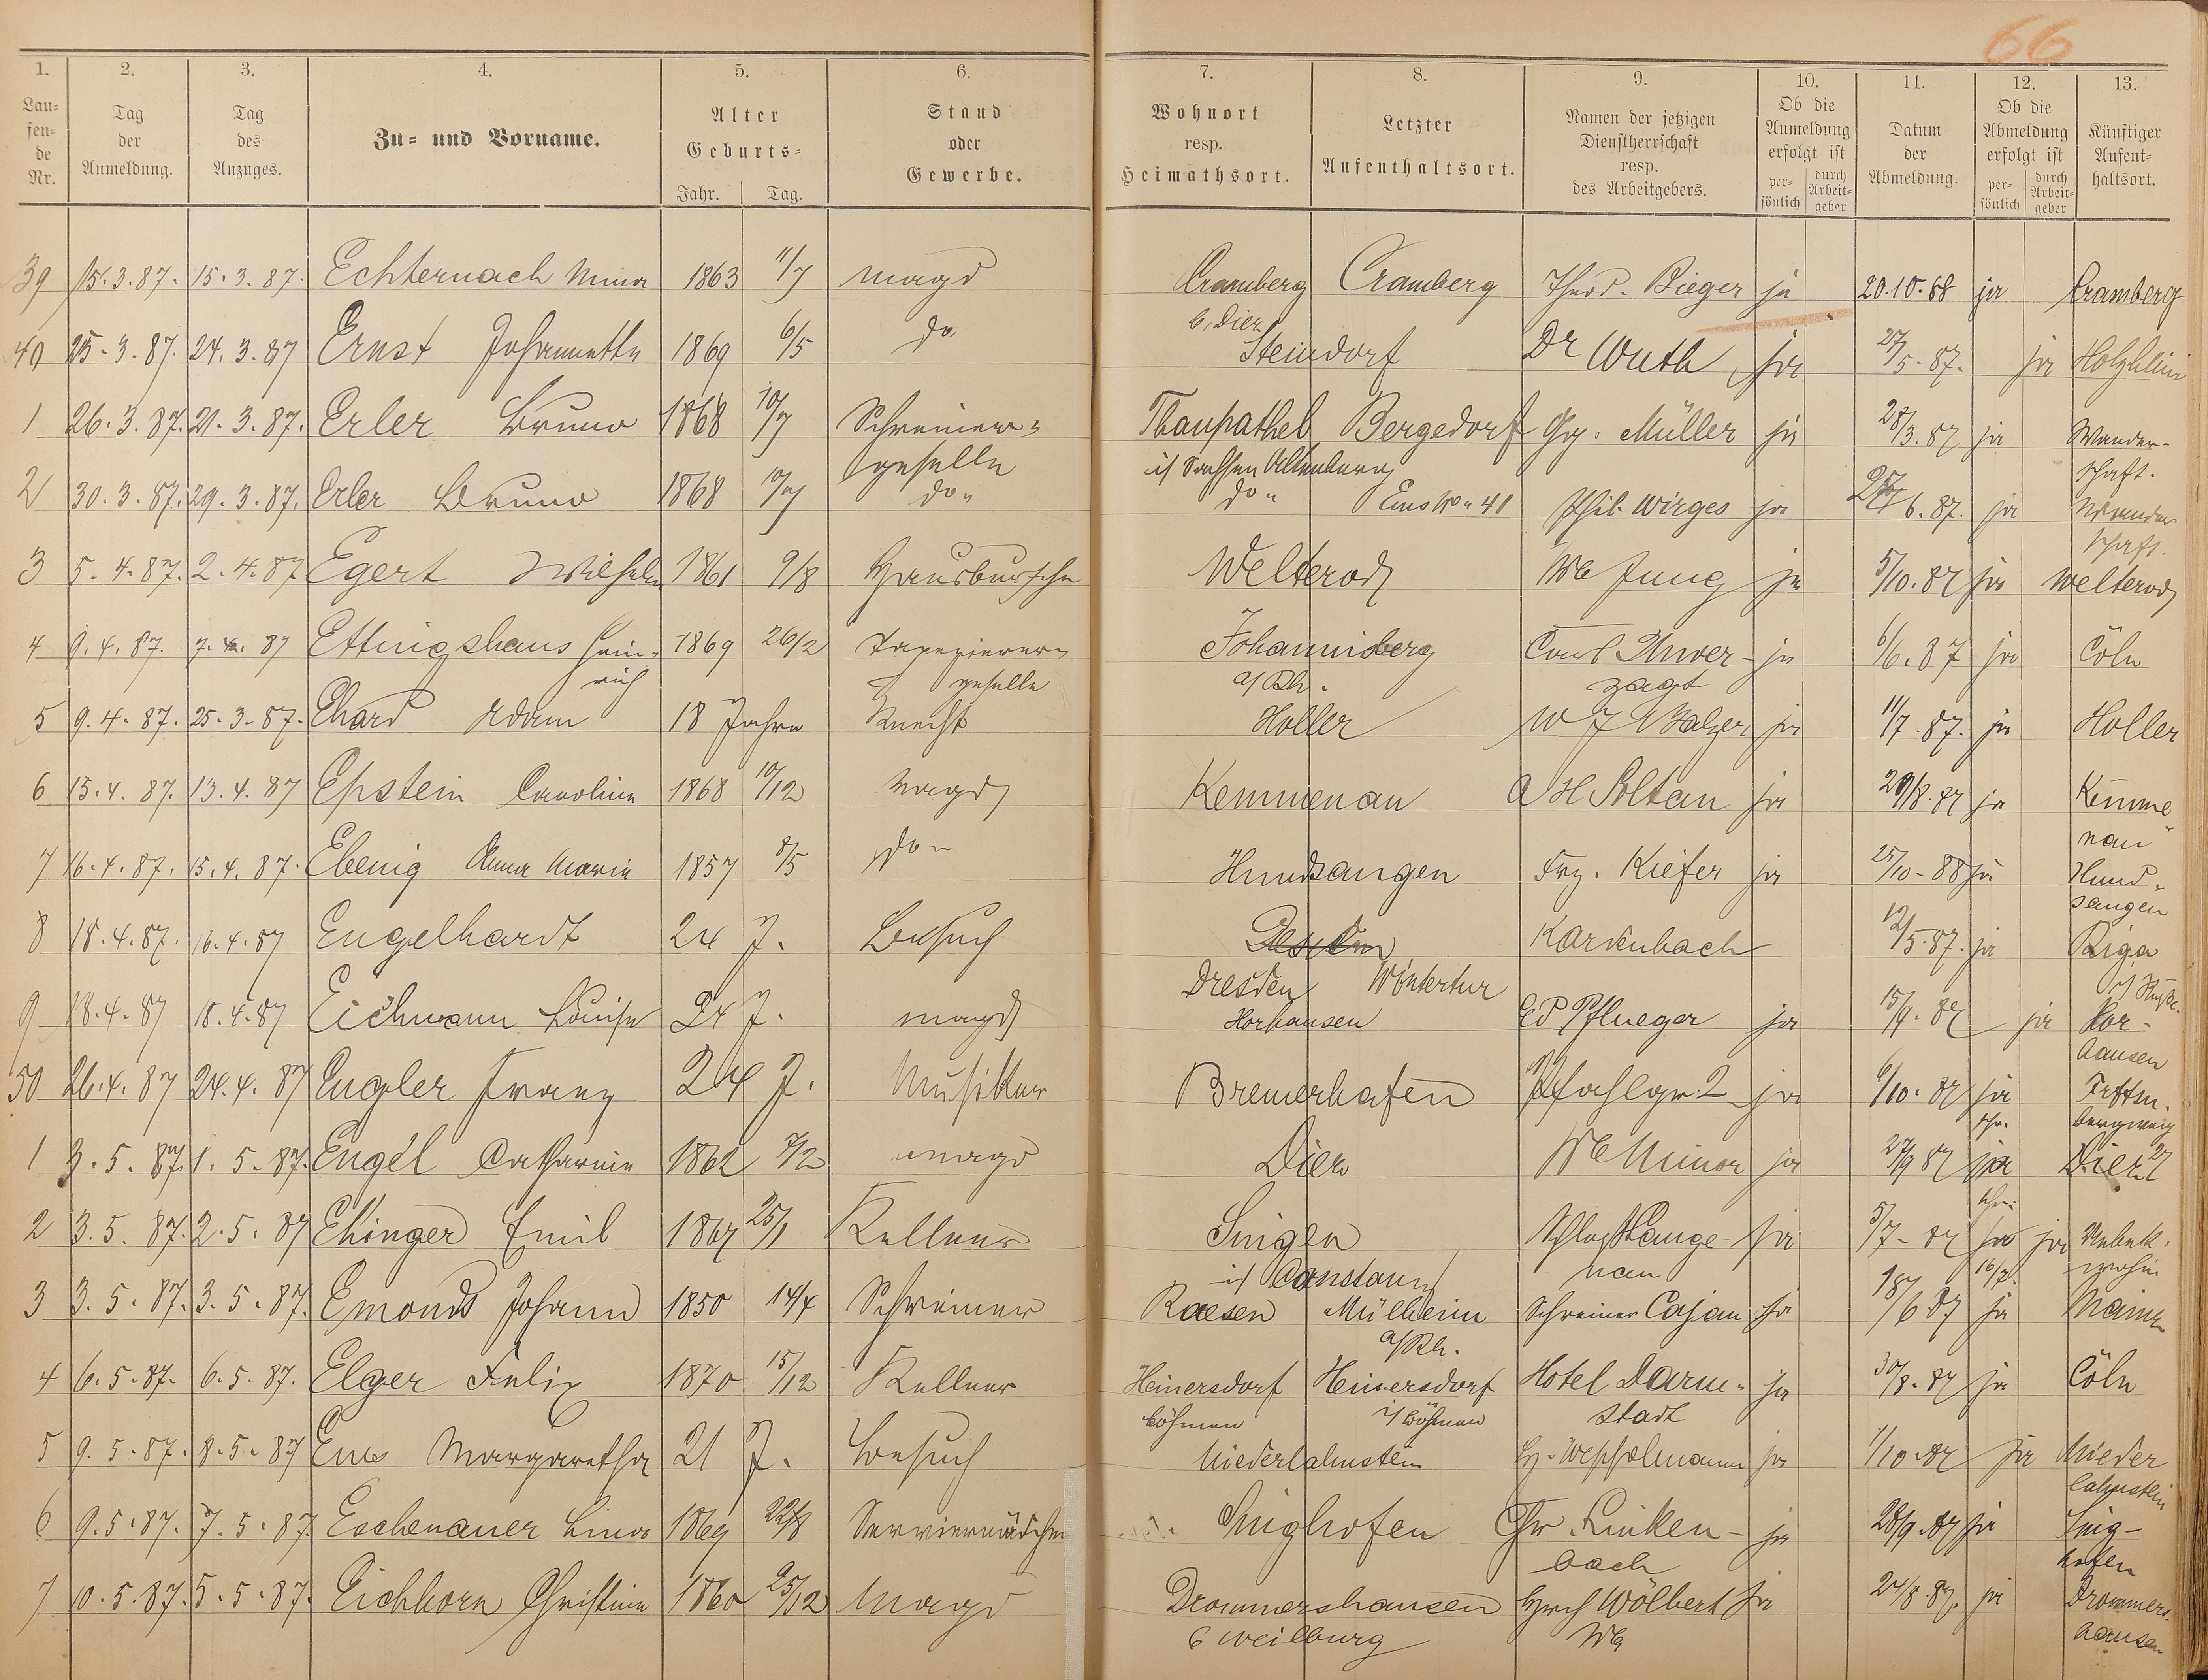 66
1. 2. 3. 4. 5. 6. 7. 8. 9. 10. 11. 12. 13.
Lau-
fen-
de
Nr.
Tag
der
Anmeldung.
Tag
des
Anzuges.
Zu- und Vorname.
Alter
Geburts-
Jahr. Tag.
Stand
oder
Gewerbe.
Wohnort
resp.
Heimathsort.
Letzter
Aufenthaltsort.
Namen der jetzigen
Dienstherrschaft
resp.
des Arbeitgebers.
Ob die
Anmeldung
erfolgt ist
per-
sönlich
durch
Arbeit-
geber
Datum
der
Abmeldung.
Ob die
Abmeldung
erfolgt ist
per-
sönlich
durch
Arbeit-
geber
Künftiger
Aufent-
haltsort.
39 15.3.87. 15.3.87. Echternach Mina 1863 11/7 Magd Cramberg Cramberg Theod. Bieger ja 20.10.88 ja Cramberg
b. Diez
40 25.3.87. 24.3.87 Ernst Johannette 1869 6/5 do. Steindorf Dr Wuth ja 27/5.87. ja
1 26.3.87. 21.3.87. Erler Bruno 1868 10/7 Schreiner- Bergedorf Gg. Müller ja 28/3.87 ja Wander-
geselle i/ Sachsen Altenburg schaft.
2 30.3.87. 29.3.87. Erler Bruno 1868 10/7 do " do " Ems No " 41 Phil. Wirges ja 6.87. ja Wander
schaft.
3 5.4.87. 2.4.87 Egert Wilhelm 1861 9/8 Hausbursche Welterod We Jung ja 5/10.87 ja Welterod
4 9.4.87. 7.4.87 Ettingshaus Hein- 1869 26/2 Tapezierer- Johannisberg Carl Unver- ja 6/6.87 ja Cöln
rich geselle a/Rh. zagt
5 9.4.87. 25.3.87. Ehard Adam 18 Jahre Knecht Holler W J Balzer ja 11/7.87. ja Holler
6 15.4.87. 13.4.87 Epstein Caroline 1868 10/12 Magd Kemmenau A H Soltan ja 20/8.87 ja Kemme
nau
7 16.4.87. 15.4.87. Ebenig Anna Maria 1857 8/5 do " Hundsangen Frz. Kiefer ja 25/10-88 ja Hund-
sangen
8 18.4.87. 16.4.87 Engelhardt 24 J. Besuch Karkenbach 12/5.87. ja Riga
Dresden Wintertur
9 18.4.87 18.4.87 Eichmann Louise 24 J. Magd Horhausen Ed Pflueger ja 15/9.87 ja Hor-
hausen
50 26.4.87 24.4.87 Engler Franz 24 J. Musiker Bremerhafen Pfahlgr. 2 ja 6/10.87 ja
1 3.5.87. 1.5.87. Engel Catharine 1862 Magd Diez We Minor ja 27/9 87 ja Diez
2 3.5.87. 2.5.87 Ehinger Emil 1867 25/1 Kellner Singen Schloss Lange- ja 5/7-87 ja ja Unbek.
i/ Constanz nau 16/7. wohin
3 3.5.87. 3.5.87. Emonds Johann 1850 14/4 Schreiner Raesen Mülheim Schreiner Cajan ja 18/6 87 ja Mainz
a/Rh.
4 6.5.87. 6.5.87. Elger Felix 1870 15/12 Kellner Heinersdorf Heinersdorf Hotel Darm- ja 30/8.87 ja Cöln
Böhmen i/ Böhmen stadt
5 9.5.87. 8.5.87 Margaretha 21 J. Besuch Niederlahnstein ja 1/10.87 ja Nieder
lahnstein
6 9.5.87. 7.5.87. Eschenauer Lina 1869 22/8 Serviermädchen Singhofen Chr. Linken- ja 28/9.87 ja Sing-
bach hofen
7 10.5.87. 5.5.87. Eichhorn Christine 1860 25/12 Magd Drommershausen Hrch Wölbert ja 24/8.87. ja Drommers-
b Weilburg We hausen